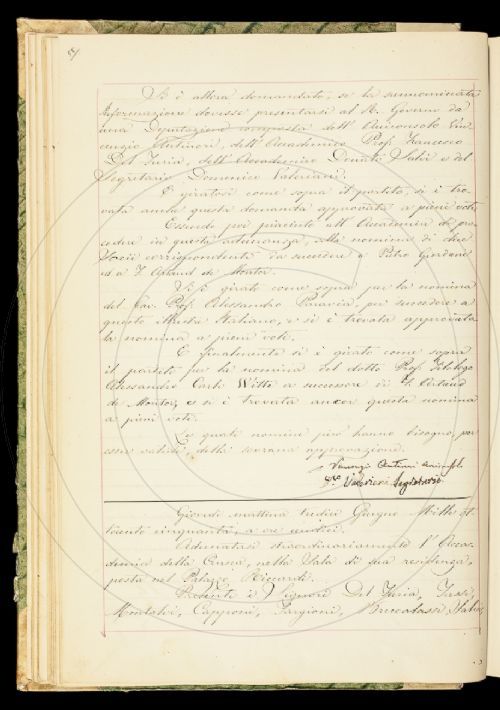 Si è allora domandato, se la summenzionata
Informazione dovesse presentarsi al R. Governo da
una Deputazione composta dell'Arciconsolo Vin-
cenzio Antinori, dell'Accademico Prof. Francesco
Del Furia, dell'Accademico Donato Salvi e del
Segretario Domenico Valeriani.
E giratosi come sopra il partito, si è tro-
vata anche questa domanda approvata a pieni voti.
Essendo poi piaciuto all'Accademia di pro-
cedere in questa adunanza, alla nomina di due
Socii corrispondenti da succedere a Pietro Giordani
ed a F. Artaud de Montor.
Si è girato come sopra per la nomina
del Cav. Prof. Alessandro Paravia, per succedere a
questo illustre Italiano, e si è trovata approvata
la nomina a pieni voti.
E finalmente si è girato come sopra
il partito per la nomina del dotto Prof. Filologo
Alessandro Carlo Witte a successore di F. Artaud
de Montor, e si è trovata ancor questa nomina
a pieni voti.
Le quali nomine però hanno bisogno, per
esser valide della sovrana approvazione.
Vincenzio Antinori
D.co Valeriani Segretario
Giovedì mattina tredici Giugno Mille ot-
tocento cinquanta, a ore undici.
Adunatasi straordinariamente l'Acca-
demia della Crusca, nella Sala di sua residenza,
posta nel Palazzo Riccardi.
Presenti i Signori Del Furia, Tassi,
Montalvi, Capponi, Targioni, Bencatassi,